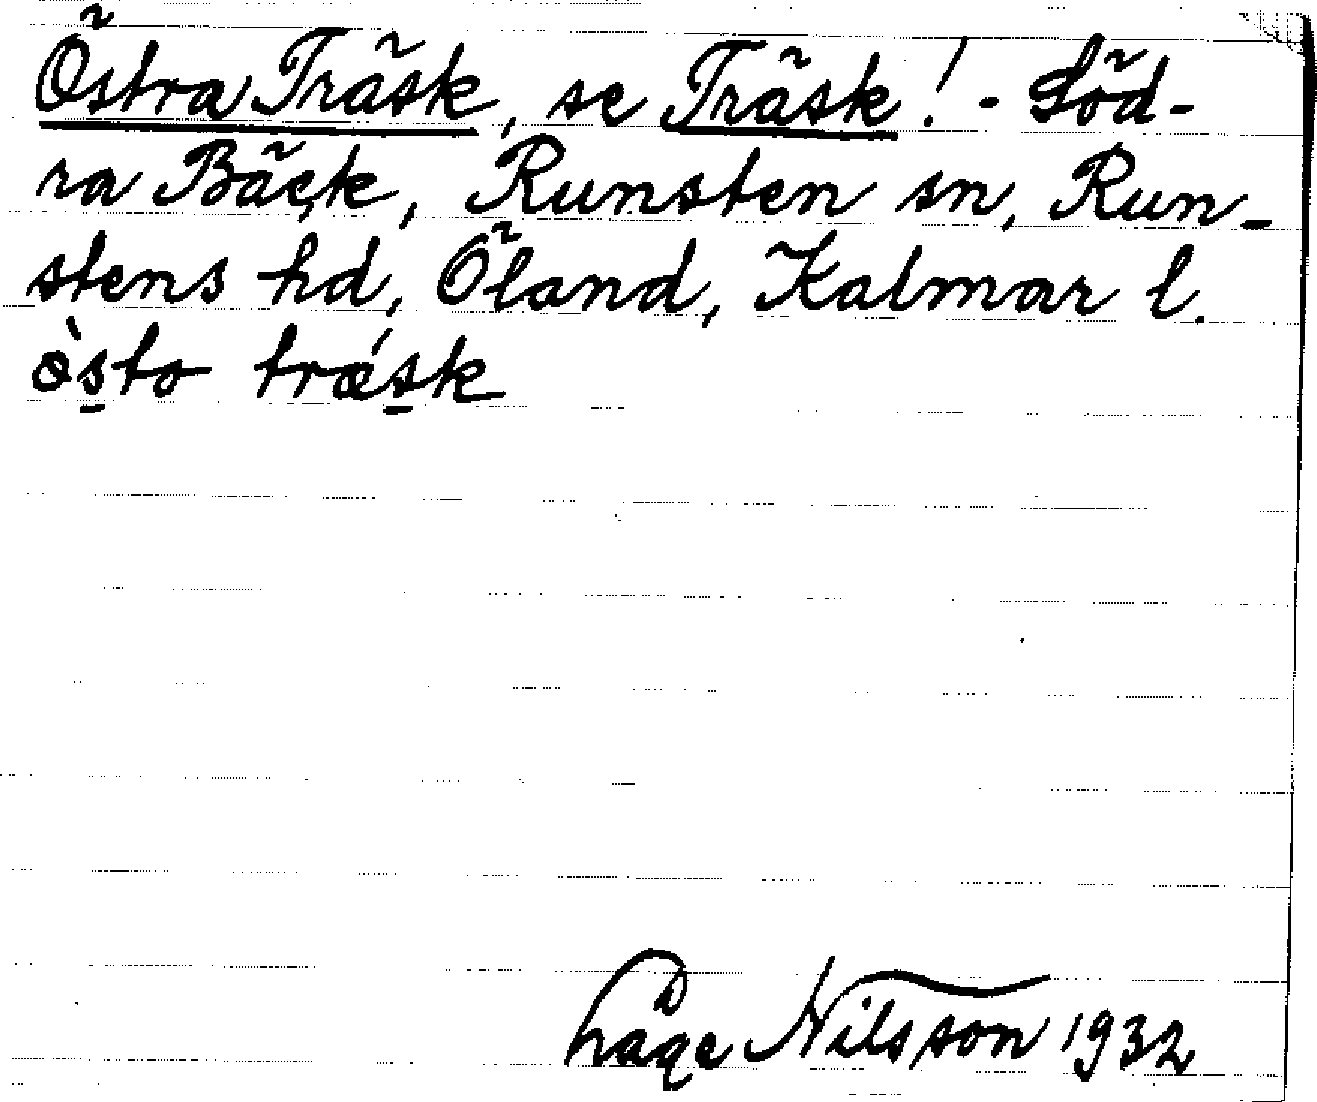 Östra Träsk, se Träsk! - Söd-
ra Bäck, Runsten sn, Run-
stens hd, Öland, Kalmar l.
òsto træ´sk
Låge Nilsson 1932